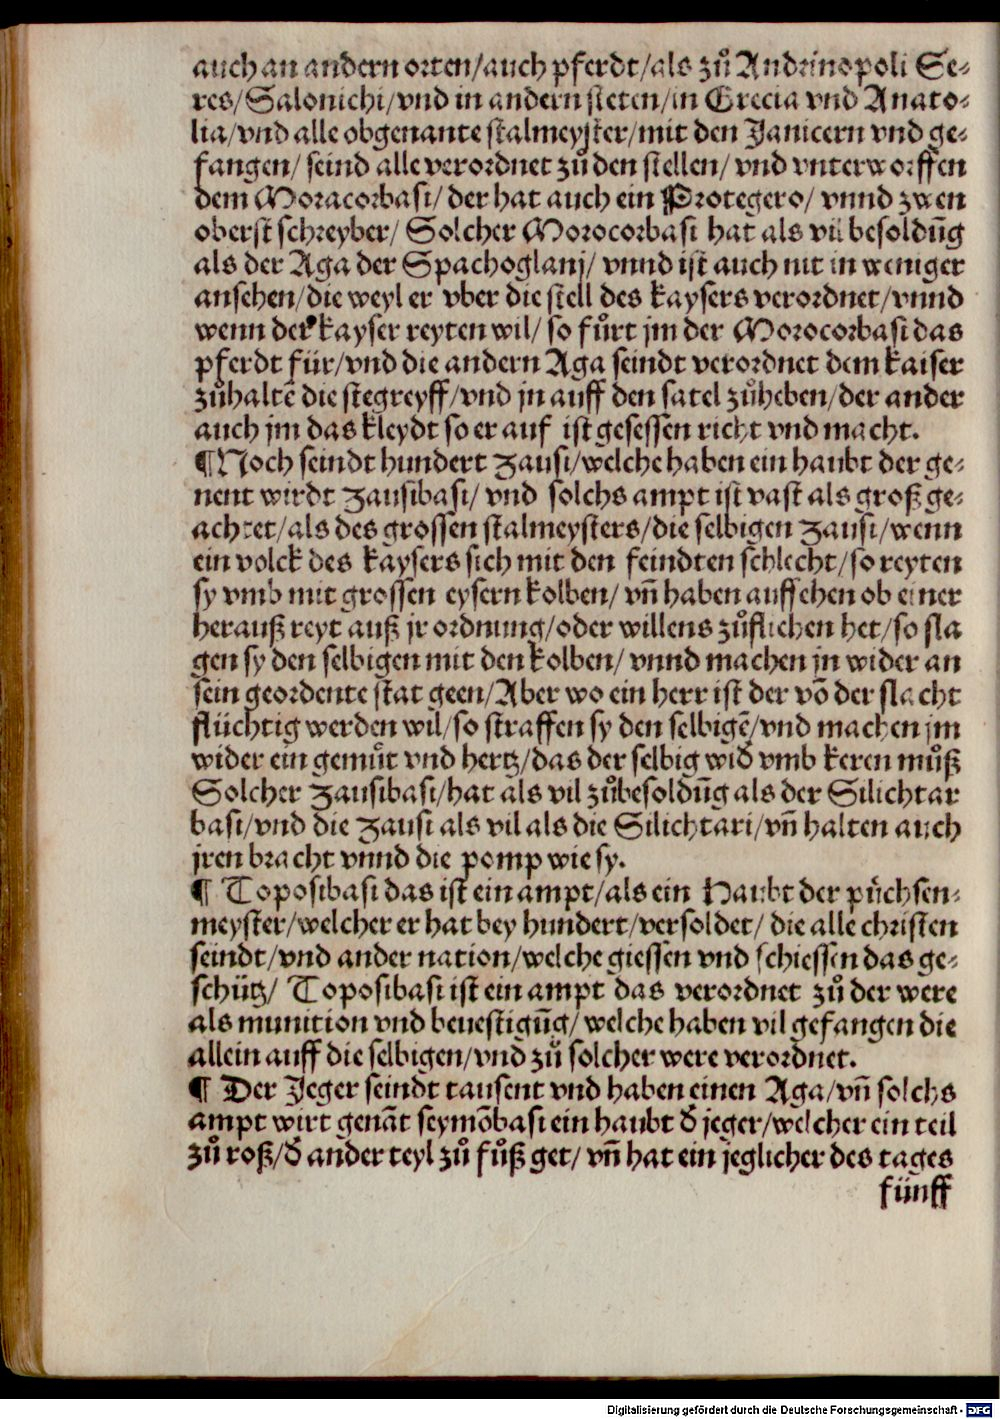 auch an andern orten/auch pferdt/als zů Andrinopoli Se⸗
res/Salonichi/vnd in andern steten/in Grecia vnd Anato⸗
lia/vnd alle obgenante stalmeyster/mit den Janicern vnd ge⸗
fangen/ seind alle verordnet zů den stellen/ vnd vnterworffen
dem Moracorbasi/ der hat auch ein Protegero/ vnnd zwen
oberst schreyber/ Solcher Morocorbasi hat als vil besoldūg
als der Aga der Spachoglani/ vnnd ist auch nit in weniger
ansehen/die weyl er vber die stell des kaysers verordnet/vnnd
wenn der kayser reyten wil/ so fůrt jm der Morocorbasi das
pferdt für/vnd die andern Aga seindt verordnet dem kaiser
zůhaltē die stegreyff/vnd jn auff den satel zůheben/der ander
auch jm das kleydt so er auf ist gesessen richt vnd macht.
¶Noch seindt hundert Zausi/welche haben ein haubt der ge⸗
nent wirdt Zausibasi/ vnd solchs ampt ist vast als groß ge⸗
achtet/als des grossen stalmeysters/die selbigen Zausi/wenn
ein volck des kaysers sich mit den feindten schlecht/so reyten
sy vmb mit grossen eysern kolben/ vn̄ haben auffsehen ob einer
herauß reyt auß jr ordnung/oder willens zůfliehen het/so sla
gen sy den selbigen mit den kolben/ vnnd machen jn wider an
sein geordente stat geen/Aber wo ein herr ist der vō der slacht
flüchtig werden wil/so straffen sy den selbigē/vnd machen jm
wider ein gemůt vnd hertz/das der selbig wid̄ vmb keren můß
Solcher Zausibasi/hat als vil zůbesoldūg als der Silichtar
basi/vnd die Zausi als vil als die Silichtari/vn̄ halten auch
jren bracht vnnd die pomp wie sy.
¶ Toposibasi das ist ein ampt/als ein Haubt der püchsen⸗
meyster/welcher er hat bey hundert/versoldet/ die alle christen
seindt/vnd ander nation/welche giessen vnd schiessen das ge⸗
schütz/ Toposibasi ist ein ampt das verordnet zů der were
als munition vnd beuestigūg/ welche haben vil gefangen die
allein auff die selbigen/vnd zů solcher were verordnet.
¶ Der Jeger seindt tausent vnd haben einen Aga/vn̄ solchs
ampt wirt genāt seymōbasi ein haubt d̄ jeger/welcher ein teil
zů roß/d̄ ander teyl zů fůß get/ vn̄ hat ein jeglicher des tages
fünff
Digitalisierung gefördert durch die Deutsche Forschungsgemeinschaft - DFG